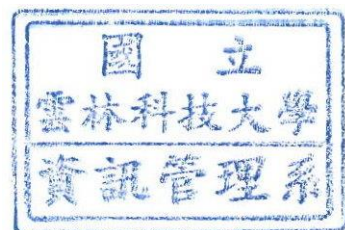 國立
雲林科技大學
資訊管理系